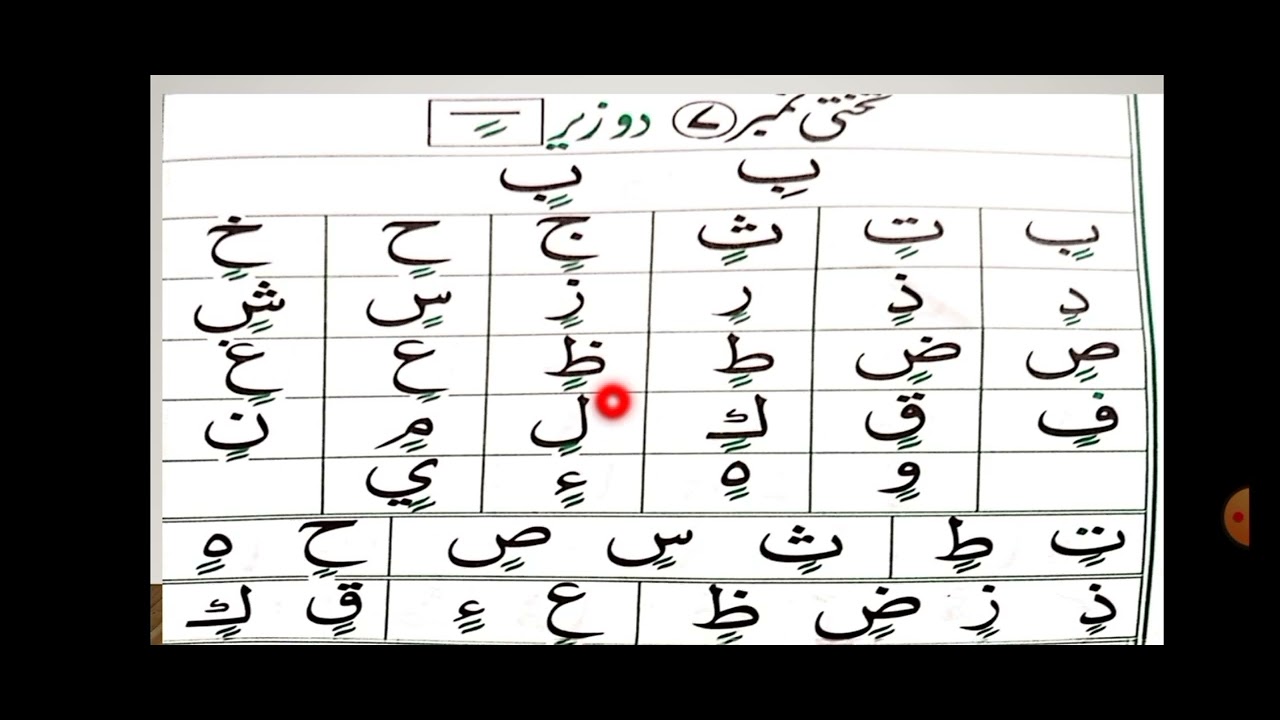 تختی نمبر ۷ دو زیر ـٍ
بِ بٍ
بٍ تٍ ثٍ جٍ حٍ خٍ
دٍ ذٍ رٍ زٍ سٍ شٍ
صٍ ضٍ طٍ ظٍ عٍ غٍ
فٍ قٍ كٍ لٍ مٍ نٍ
وٍ هٍ ءٍ يٍ
تٍ طٍ ثٍ سٍ صٍ حٍ هٍ
ذٍ زٍ ضٍ ظٍ عٍ ءٍ قٍ كٍ